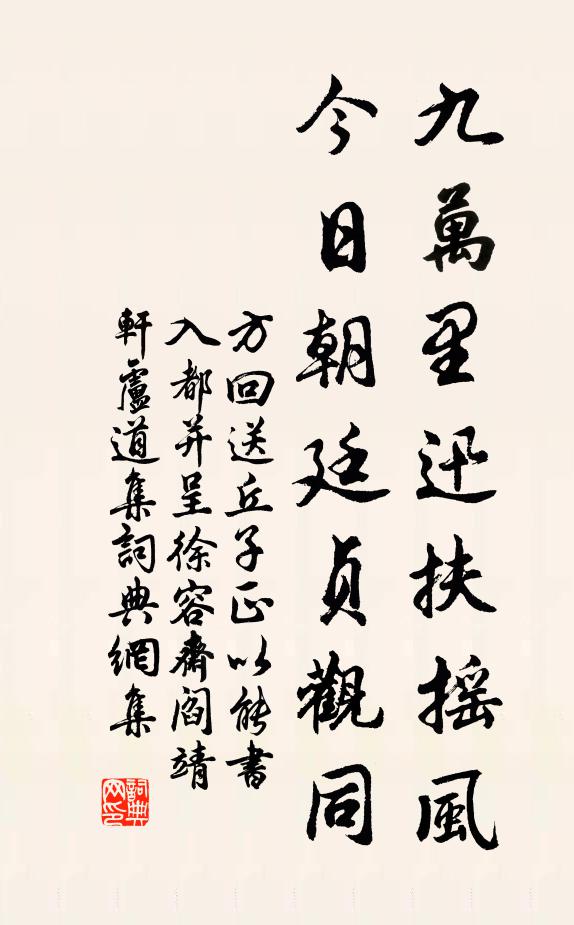 九萬里迅扶摇風
今日朝廷貞觀同
方回送丘子正以能書
入都并呈徐容齋閻靖
軒盧道集詞典網集
詞典網印